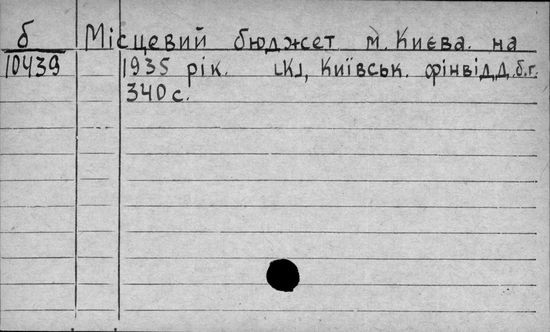 б Місцевий бюджет м. Києва. на
10439 1935 рік. [К], Київськ. фінвідд. б.г.
340 с.